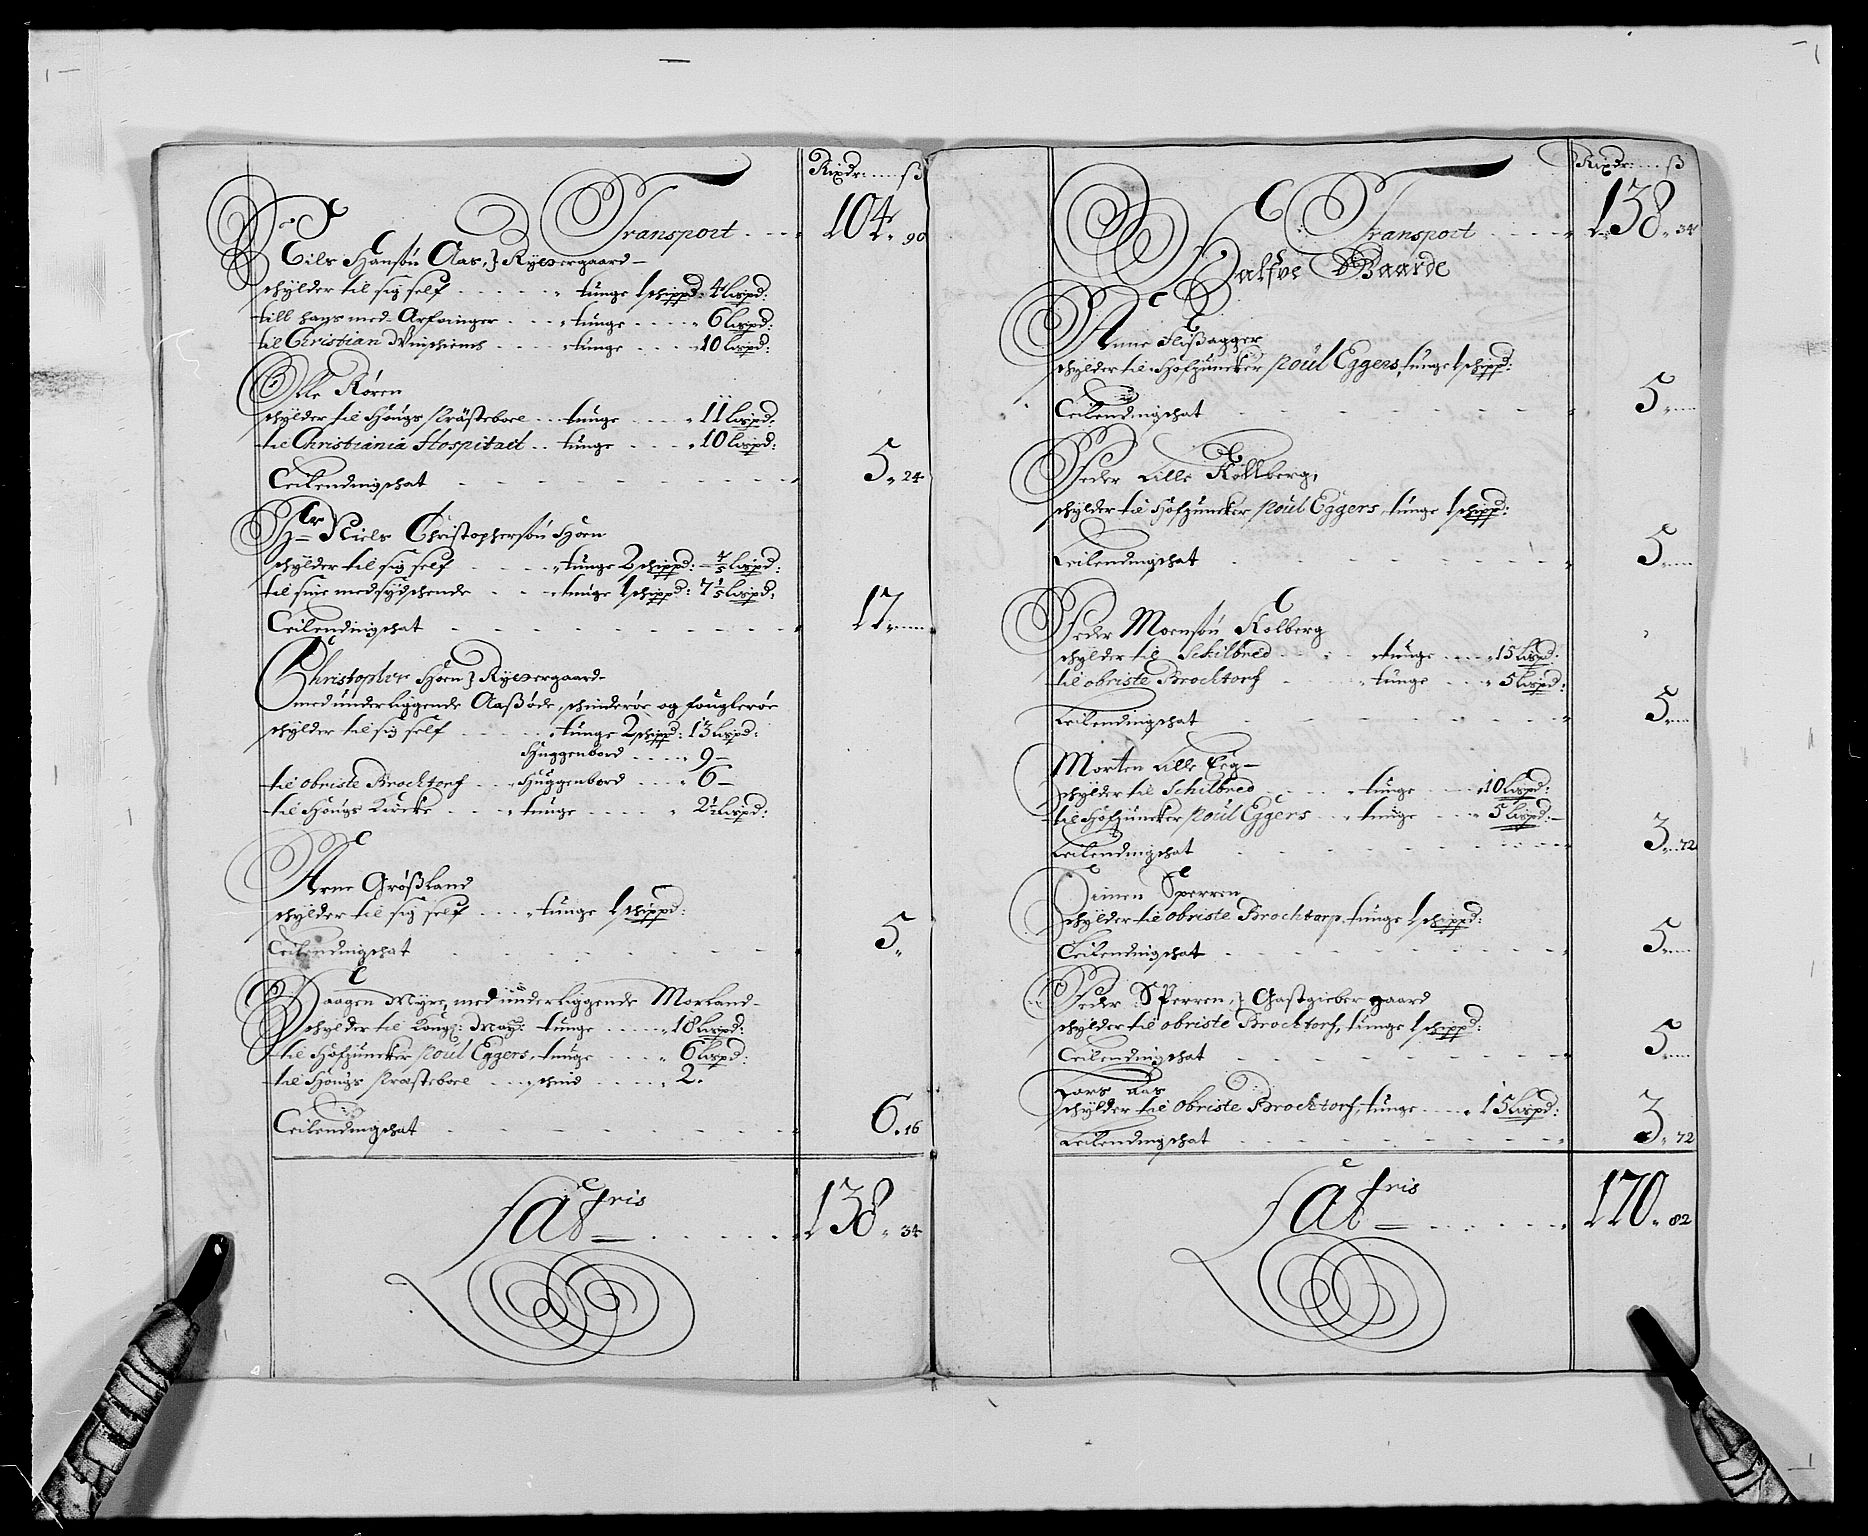 Rixdr: ß
Transport 104. 90
Eils Hansøn Aas, Rytergaard
schylder til sig self tunge 1 schippd: 4 lispd:
till hans med Arfvinger tunge 6 lispd:
til Christian tunge 10 lispd:
Olle Røren
schylder til Hougs Præsteboel tunge 11 lispd:
til Christiania Hospitael tunge 10 lispd:
Leilendingschat 5. 24
Hr Niels Christophersøn Horn
schylder til sig self tunge 2 schippd: lispd:
til sine medsydschende tunge 1 schippd: lispd:
Leilendingschat 17
Christopher Horn, Rytergaard
med underliggende Aasøde, schinderøe og fouglerøe
schylder til sig self tunge 2 schippd: 13 lispd:
Huggenbord 9
til obriste Brocktorf Huggenbord 6
til Hougs Kircke tunge 2½ lispd:
Arne Grøßland
schylder til sig self tunge 1 schippd:
Leilendingschat 5
Aagen Myre, med underliggende Morland
schylder til Kongl: May: tunge 18 lispd:
til Hofjuncker Poul Eggers, tunge 6 lispd:
til Hougs Præsteboel schind 2.
Leilendingschat 6. 16
Latris 138. 34
Rixdr: ß
Transport 138. 34
Halfve Gaarde
Anne Flißagger
schylder til Hofjuncker Poul Eggers, tunge 1 schippd:
Leilendingschat 5
Peder Lille Kollberg,
schylder til Hofjuncker Poul Eggers, tunge 1 schippd:
Leilendingschat 5
Peder Moensøn Kolberg
schylder til Schilbred tunge 15 lispd:
til obriste Brocktorf tunge 5 lispd:
Leilendingschat 5
Morten Lille Eeg
schylder til Schilbred tunge 10 lispd:
til Hofjuncker Poul Eggers tunge 5 lispd:
Leilendingschat 3. 72
Simen Sperren
schylder til obriste Brocktorp, tunge 1 schippd:
Leilendingschat 5
Peder Sperren, Gastgieber gaard
schylder til obriste Brocktorf, tunge 1 schippd:
Leilendingschat 5
Lars Aas
schylder til obriste Brocktorf, tunge 15 lispd:
Leilendingschat 3. 72
Latris 170. 82